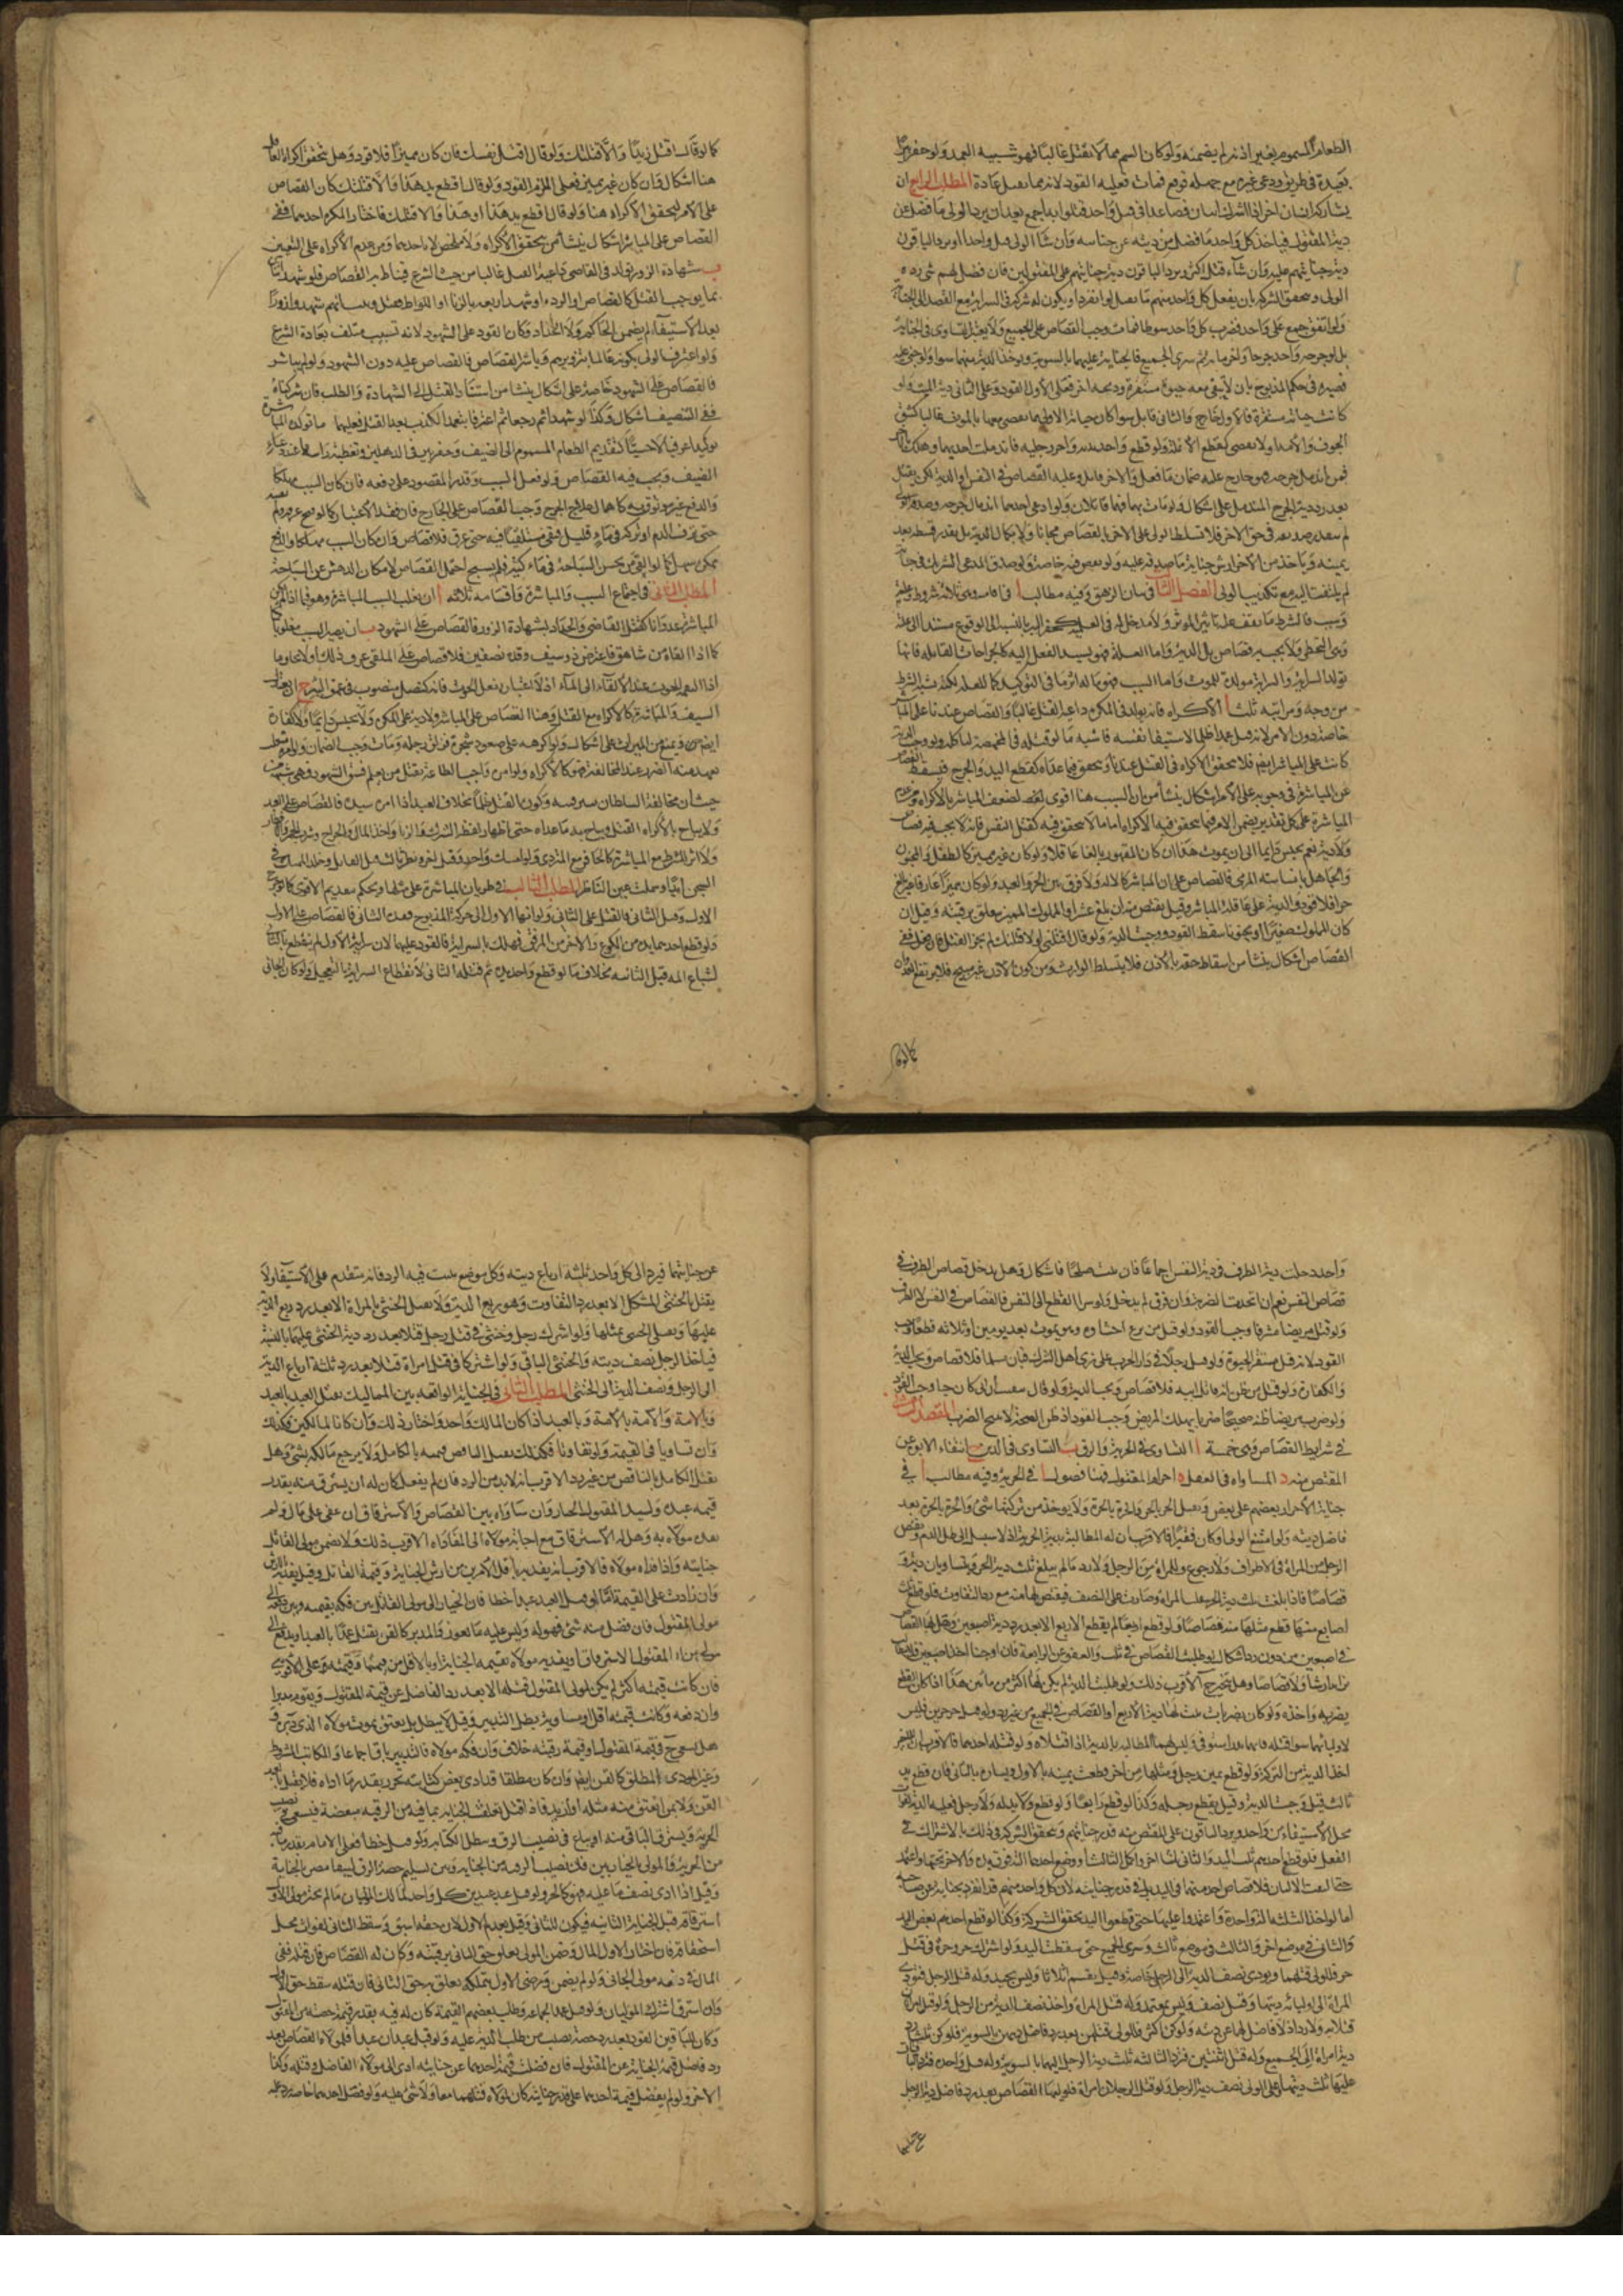 الطعام المسموم بغير اذنه لم يضمنه ولو كان السم مما لا يقتل غالبا فهو شبيه العمد ولو حفر بئرا
بعيدة في طريق ودعى غيره مع جهله فوقع فمات فعليه القود لانه مما يقصد عادة المطلب الرابع ان
يشاركه انسان اخر اذا اشترك انسان فصاعدا في قتل واحد قتلوا به اجمع بعد ان يرد الولي ما فضل عن
دية المقتول فياخذ كل واحد ما فضل من ديته عن جنايته وان شاء الولي قتل واحدا او يرد الباقون
دية جنايتهم عليه وان شاء قتل اكثر ويرد الباقون دية جنايتهم على المقتولين فان فضل لهم شي رده
الولي وتتحقق الشركة بان يفعل كل واحد منهم ما يقتل لو انفرد او يكون له شركة في السراية مع القصد الى الجناية
ولو اتفق جمع على واحد فضرب كل واحد سوطا فمات وجب القصاص على الجميع ولا يعتبر التساوي في الجناية
بل لو جرحه واحد جرحا والاخر مائة ثم سرى الجميع فالجناية عليهما بالسوية ويؤخذ الدية منهما سواء ولو جنى عليه
فصيره في حكم المذبوح بان لا يبقى معه حيوة مستقرة وذبحه اخر فعلى الاول القود وعلى الثاني دية الميت ولو
كانت حياته مستقرة فالاول جارح والثاني قاتل سواء كان جناية الاول مما يقضى معها بالموت غالبا كشق
الجوف والآمة او لا يقضى كقطع الانملة ولو قطع واحد يده واخر رجله فاندملت احديهما وهلك بالاخرى
فمن اندمل جرحه فهو جارح عليه ضمان ما فعل والاخر قاتل وعليه القصاص في النفس او الدية لكن يقتل
بعد رد دية الجرح المندمل على اشكال ولو مات بهما فهما قاتلان ولو ادعى احدهما اندمال جرحه وصدقه الولي
لم ينفذ تصديقه في حق الاخر فلا يتسلط الولي على الاخر بالقصاص مجانا ولا بكمال الدية بل بقدر قسطه بعد
يمينه وياخذ من الاخر ارش جناية ما صدقه عليه
لم يلتفت اليه مع تكذيب الولي الفصل الثاني في بيان الزهوق وفيه مطالب ا في اقسامه وهي ثلاثة شرط وعلة
وسبب فالشرط ما يقف عليه تاثير المؤثر ولا مدخل له في العلية كحفر البئر بالنسبة الى الوقوع مستندا الى علته
وهي التخطي ولا يجب به قصاص بل الدية واما العلة فهو يسند الفعل اليه كالجراحات القاتلة فانها
تولد السراية والسراية مولدة للموت واما السبب فهو ما له اثر ما في التوليد كما للعلة لكنه يشبه الشرط
من وجه ومراتبه ثلث ا الاكراه فانه يولد في المكره داعية القتل غالبا والقصاص عندنا على المباشر
خاصة دون الامر لانه قتل عمدا ظلما لاستيفاء نفسه فاشبه ما لو قتله في المخمصة لياكله ولو وجب الدية
كانت على المباشر ايضا فلا يتحقق الاكراه في القتل عندنا ويتحقق فيما عداه كقطع اليد والجرح فيسقط القصاص
عن المباشر وفي وجوبه على الامر اشكال ينشأ من ان السبب هنا اقوى لضعف المباشر بالاكراه ومن عدم
المباشرة وعلى كل تقدير يضمن الامر فيما يتحقق فيه الاكراه اما ما لا يتحقق فيه كقتل النفس فانه لا يجب فيه قصاص
ولا دية نعم يحبس دائما الى ان يموت هذا ان كان المقهور بالغا عاقلا ولو كان غير مميز كالطفل والمجنون
والجاهل بانسانية المرمي فالقصاص على الامر لان المباشر كالالة ولا فرق بين الحر والعبد ولو كان مميزا عارفا غير بالغ
حرا فلا قود والدية على عاقلة المباشر وقيل يقتص منه ان بلغ عشرا والمملوك المميز يتعلق برقبته وقيل ان
كان المملوك صغيرا او مجنونا سقط القود ووجبت الدية ولو قال اقتلني والا قتلتك لم يجز القتل فان فعل ففي
القصاص اشكال ينشأ من اسقاط حقه بالاذن فلا يتسلط الوارث ومن كون الاذن غير مبيح فلا يرتفع العدوان
كما لو قال
كما لو قال اقتل زيدا والا قتلتك ولو قال اقتل نفسك فان كان مميزا فلا قود وهل يتحقق اكراه العاقل
هنا اشكال وان كان غير مميز فعلى الملزم القود ولو قال اقطع يد هذا والا قتلتك كان القصاص
على الامر لتحقق الاكراه هنا ولو قال اقطع يد هذا او هذا والا قتلتك فاختار المكره احدهما ففي
القصاص على المباشر اشكال ينشأ من تحقق الاكراه ولا مخلص الا باحدهما ومن عدم الاكراه على التعيين
ب شهادة الزور تولد في القاضي داعية القتل غالبا من حيث الشرع فيناط به القصاص فلو شهد اثنان
بما يوجب القتل كالقصاص او الردة او شهد اربعة بالزنا او اللواط فقتل وثبت انهم شهدوا زورا
بعد الاستيفاء لم يضمن الحاكم ولا الحداد وكان القود على الشهود لانه تسبيب متلف بعادة الشرع
ولو اعترف الولي بكونه عالما بتزويرهم وباشر القصاص فالقصاص عليه دون الشهود ولو لم يباشر
فالقصاص على الشهود خاصة على اشكال ينشا من استناد القتل الى الشهادة والطلب فان شركناه
ففي التنصيف اشكال وكذا لو شهدا ثم رجعا ثم اعترفا بتعمد الكذب بعد القتل فعليهما ما تولد المباشرة
توليدا عرفيا لا حسيا كتقديم الطعام المسموم الى الضيف وحفر بئر في الدهليز وتغطية راسها عند دعاء
الضيف ويجب فيه القصاص ولو فعل السبب وقدر المقصود على دفعه فان كان السبب مهلكا
والدفع غير موثوق به كاهمال علاج الجرح وجب القصاص على الجارح
حتى نزف الدم او تركه في ماء قليل فبقي مستلقيا فيه حتى غرق فلا قصاص وان كان السبب مهلكا والدفع
ممكن سهل كما لو القي من يحسن السباحة في ماء كثير فلم يسبح احتمل القصاص لامكان الدهش عن السباحة
المطلب الثاني في اجتماع السبب والمباشرة واقسامه ثلاثة ا ان يغلب السبب المباشرة وهو فيما اذا لم تكن
المباشرة عدوانا كقتل القاضي والجلاد بشهادة الزور فالقصاص على الشهود ب ان يصير السبب مغلوبا
كما اذا القاه من شاهق فاعترضه ذو سيف وقده نصفين فلا قصاص على الملقي عرف ذلك او لا بخلاف ما
اذا التقمه الحوت عند الالقاء الى الماء اذ لا اعتبار بفعل الحوت فانه كنصل منصوب في عمق البئر ج ان يعتدل
السبب والمباشرة كالاكراه مع القتل وهنا القصاص على المباشر ولا دية على المكره ولا كفارة
ايضا ويمنع من الميراث على اشكال ولو اكرهه على صعود شجرة فزلق رجله ومات وجب الضمان
بعد منه الضرر عند المخالفة فهو كالاكراه ولو امر واجب الطاعة بقتل من يعلم فسق الشهود فهي شبهة من
حيث ان مخالفة السلطان تثير فتنة وكون القتل ظلما بخلاف العبد اذا امره سيده فالقصاص على العبد
ولا يباح بالاكراه القتل ويباح به ما عداه حتى اظهار لفظ الشرك والزنا واخذ المال والجراح وشرب الخمر والافطار
ولا اثر للشرط مع المباشرة كالحافر مع المتردي ولو امسك واحد وقتل اخر ونظر ثالث قتل القاتل وخلد الممسك في
السجن ابدا وسملت عين الناظر المطلب الثالث في طريان المباشرة على مثلها ويحكم بتقديم الاقوى كما لو جرح
الاول وقتل الثاني فالقتل على الثاني ولو انهاه الاول الى حركة المذبوح فقده الثاني فالقصاص على الاول
ولو قطع احدهما يده من الكوع والاخر من المرفق فهلك بالسراية فالقود عليهما لان سراية الاول لم ينقطع بالثاني
لشياع المه قبل الثانية بخلاف ما لو قطع واحد يده ثم قتله الثاني لانقطاع السراية بالتعجيل ولو كان الجاني
واحدا دخلت دية الطرف في دية النفس اجماعا فان ثبت صلحا فاشكال وهل يدخل قصاص الطرف في
قصاص النفس نعم ان اتحدت الضربة وان فرق لم يدخل ولو سرى القطع الى النفس فالقصاص في النفس لا الطرف
ولو قتل مريضا مشرفا وجب القود ولو قتل من نزع احشاؤه وهو يموت بعد يومين او ثلاثة قطعا وجب
القود لانه قتل مستقر الحيوة ولو قتل رجلا في دار الحرب على زي اهل الشرك فبان مسلما فلا قصاص ويجب الدية
والكفارة ولو قتل من ظن انه قاتل ابيه فلا قصاص ويجب الدية ولو قال تبينت ان ابي كان حيا وجب القود
ولو ضرب مريضا ظنه صحيحا ضربا يهلك المريض وجب القود اذ ظن الصحة لا يبيح الضرب المقصد الثاني
في شرايط القصاص وهي خمسة ا التساوي في الحرية والرق ب التساوي في الدين ج انتفاء الابوة عن
المقتص منه د المساواة في العقل ه احترام المقتول فهنا فصول ا في الحرية وفيه مطالب ا في
جناية الاحرار بعضهم على بعض ويقتل الحر بالحر والحرة بالحرة ولا يؤخذ من تركتهما شئ والحرة بالحر بعد
فاضل ديته ولو امتنع الولي او كان فقيرا فالاقرب ان له المطالبة بدية الحرة اذ لا سبيل الى طل الدم ويقتص
الرجل من المراة في الاطراف ولا رجوع والمراة من الرجل ولا رد ما لم يبلغ ثلث دية الحر ويتساويان دية و
قصاصا فاذا بلغت ثلث دية الحر سفلت المراة وصارت على النصف فيقتص لها منه مع رد التفاوت فلو قطع ثلث
اصابع منها قطع مثلها منه قصاصا ولو قطع اربعا لم يقطع الاربع الا بعد رد دية اصبعين وهل لها القصاص
في اصبعين من دون رد اشكال ولو طلبت القصاص في ثلث والعفو عن الرابعة
يضربه واحدة ولو كان بضربات ثبت لها دية الاربع او القصاص في الجميع من غير رد ولو قتل حر حرين فليس
لاوليائهما سوى قتله وليس لهما المطالبة بالدية اذا قتلاه ولو قتله احدهما فالاقرب ان للاخر
اخذ الدية من التركة ولو قطع يمين رجل ومثلها من اخر قطعت يمينه بالاول ويساره بالثاني فان قطع يد
ثالث قيل وجبت الدية وقيل يقطع رجله وكذا لو قطع رابعا ولو قطع ولا يد له ولا رجل فعليه الدية لفوات
محل الاستيفاء من واحد ويرد الباقون على المقتص منه قدر جنايتهم وتحقق الشركة في ذلك بالاشتراك في
الفعل فلو قطع احدهم ثلث اليد والثاني ثلثا اخر واكمل الثالث او وضع احدهما الته فوق يده والاخر تحتها واعتمد
حتى التقت الالتان فلا قصاص في اليد بل في قدر جنايته لان كل واحد منهم قد انفرد بجناية عن صاحبه
اما لو اخذ الثلثة الة واحدة واعتمدوا عليها حتى قطعوا اليد تحقق الشركة وكذا لو قطع احدهم بعض اليد
والثاني في موضع اخر والثالث في موضع ثالث وسرى الجميع حتى سقطت اليد ولو اشترك حر وحرة في قتل
حر فللولي قتلهما ويودي نصف الدية الى الرجل خاصة وقيل يقسم اثلاثا وليس بجيد وله قتل الرجل فتؤدي
المراة الى اوليائه ديتها وقيل نصف وليس بمعتمد وله قتل المراة واخذ نصف الدية من الرجل ولو قتل امراتان
قتلتا به ولا رد اذ لا فاضل لهما عن ديته ولو كن اكثر فللولي قتلهن بعد رد فاضل ديتهن بالسوية فلو كن ثلثا رد
دية امراة الى الجميع وله قتل اثنتين فترد الثالثة ثلث دية الرجل اليهما بالسوية وله قتل واحدة فترد الباقيتان
عليها ثلث ديتها وعلى الولي نصف دية الرجل ولو قتل الرجلان امراة فلوليها القصاص بعد رد فاضل دية الرجل
عن جنايتهما
عن جنايتهما فيرد الى كل واحد ثلثة ارباع ديته وكل موضع يثبت فيه الرد فانه متقدم على الاستيفاء ولا
يقتل بالخنثى المشكل الا بعد رد التفاوت وهو ربع الدية ولا يقتل الخنثى بالمراة الا بعد رد ربع الدية
عليها ويقتل الخنثى بمثلها ولو اشترك رجل وخنثى في قتل رجل قتلا بعد رد دية الخنثى عليهما بالنسبة
فياخذ الرجل نصف ديته والخنثى الباقي ولو اشتركا في قتل امراة قتلا بعد رد ثلثة ارباع الدية
الى الرجل ونصف الدية الى الخنثى المطلب الثاني في الجناية الواقعة بين المماليك يقتل العبد بالعبد
وبالامة والامة بالامة وبالعبد اذا كان المالك واحدا واختار ذلك وان كانا لمالكين فكذلك
وان تساويا في القيمة ولو تفاوتا فكذلك يقتل الناقص قيمته بالكامل ولا يرجع مالكه بشئ وهل
يقتل الكامل بالناقص من غير رد الاقرب انه لا بد من الرد فان لم يفعل كان له ان يسترق منه بقدر
قيمة عبده ولسيد المقتول الخيار وان ساواه بين القصاص والاسترقاق ان عفى على مال ولم
مولاه به وهل له الاسترقاق مع اجابة مولاه الى المفاداة الاقرب ذلك ولا يضمن مولى القاتل
جنايته واذا فداه مولاه فالاقرب انه يفديه باقل الامرين من ارش الجناية وقيمة القاتل وقيل يفديه بالارش
وان زادت على القيمة اما لو قتل العبد عبدا خطا فان الخيار الى مولى القاتل بين فكه بقيمته وبين دفعه الى
مولى المقتول فان فضل منه شئ فهو له وليس عليه ما يعوز والمدبر كالقن يقتل عمدا بالعبد او يدفع الى
مولى المقتول لاسترقاق او يفديه مولاه بقيمة الجناية او بالاقل من قيمتها وقيمته وعلى الاقوى
فان كانت قيمته اكثر لم يكن لمولى المقتول قتله الا بعد رد الفاضل عن قيمة المقتول ويقوم مدبرا
وان دفعه وكانت قيمته اقل او مساوية بطل التدبير وقيل لا يبطل بل يعتق بموت مولاه الذي دبره و
هل يسعى ح في قيمة المقتول او قيمة رقبته خلاف وان فكه مولاه فالتدبير باق اجماعا والمكاتب المشروط
وغير المؤدي المطلق كالقن ايضا وان كان مطلقا قد ادى بعض كتابته تحرر بقدر ما اداه فلا يقتل بالعبد
القن ولا بمن انعتق منه مثله او ازيد فاذا قتل تعلقت الجناية بما فيه من الرقية مبعضة فيسعى في نصيب
الحرية ويسترق الباقي منه او يباع في نصيب الرق وتبطل الكتابة ولو قتل خطا فعلى الامام بقدر ما فيه
من الحرية والمولى بالخيار بين فك نصيب الرقية من الجناية وبين تسليم حصة الرق ليقاص بالجناية
وقيل اذا ادى نصف ما عليه فهو كالحر ولو قتل عبد عبدين كل واحد لمالك
استرقاقه قبل الجناية الثانية فيكون للثاني وقيل يقدم الاول لان حقه اسبق وسقط الثاني لفوات محل
استحقاقه فان اختار الاول المال وضمن المولى تعلق حق الثاني برقبته وكان له القصاص فان قتله بقي
المال في ذمة مولى الجاني ولو لم يضمن ورضي الاول بتملكه تعلق به حق الثاني فان قتله سقط حق الاول
وان استرق اشترك الموليان ولو قتل عبدا لجماعة وطلب بعضهم القيمة كان له فيه بقدر قيمة حصته من المقتول
وكان للباقين القود بعد رد حصة نصيب من طلب الدية عليه ولو قتل عبدان عبدا فلمولاه القصاص بعد
رد فاضل قيمة الجناية عن المقتول فان فضلت قيمة احدهما عن جنايته ادى الى مولاه الفاضل وقتله وكذا
الاخر ولو لم يفضل قيمة احدهما على قدر جنايته كان لمولاه قتلهما معا ولا شئ عليه ولو فضل احدهما خاصة رد عليه